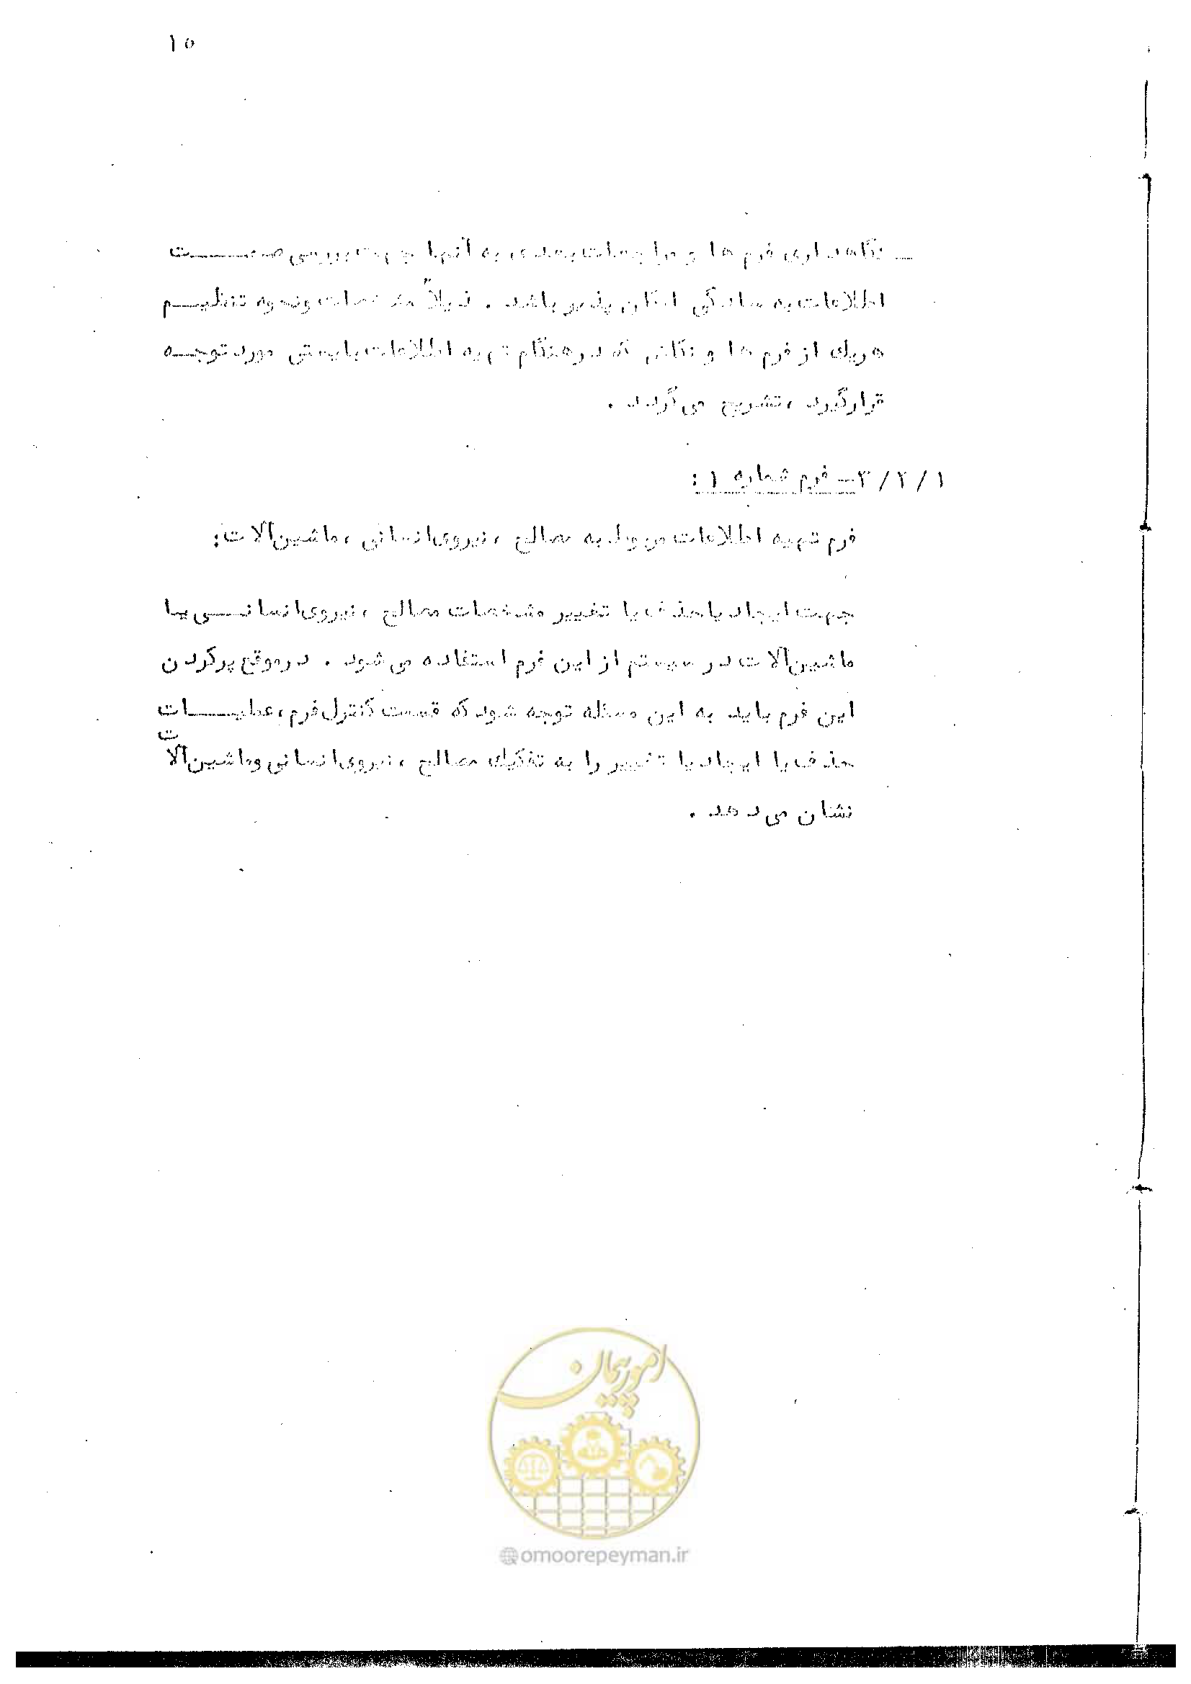 ۱۵
_ نگاهداری فرم ها و مراجعات بعدی به آنها جهت بررسی صحت
اطلاعات به سادگی امکان پذیر باشد . ذیلاً مشخصات و نحوه تنظیم
هریك از فرم ها و نکاتی که در هنگام تهیه اطلاعات بایستی مورد توجه
قرار گیرد ، تشریح می گردد .
۳/۲/۱ـ فرم شماره ۱ :
فرم تهیه اطلاعات مربوط به مصالح ، نیروی انسانی ، ماشین آلات :
جهت ایجاد یا حذف یا تغییر مشخصات مصالح ، نیروی انسانی یا
ماشین آلات در سیستم از این فرم استفاده می شود . در موقع پر کردن
این فرم باید به این مسئله توجه شود که قسمت کنترل فرم ، عملیات
حذف یا ایجاد یا تغییر را به تفکیك مصالح ، نیروی انسانی و ماشین آلات
نشان می دهد .
امور پیمان
@omoorepeyman.ir